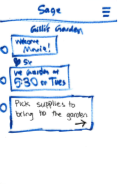 Sage
Gillis Garden
Welcome
Minnie!
we Garden at
5:30 on Tues
Pick supplies to
bring to the garden